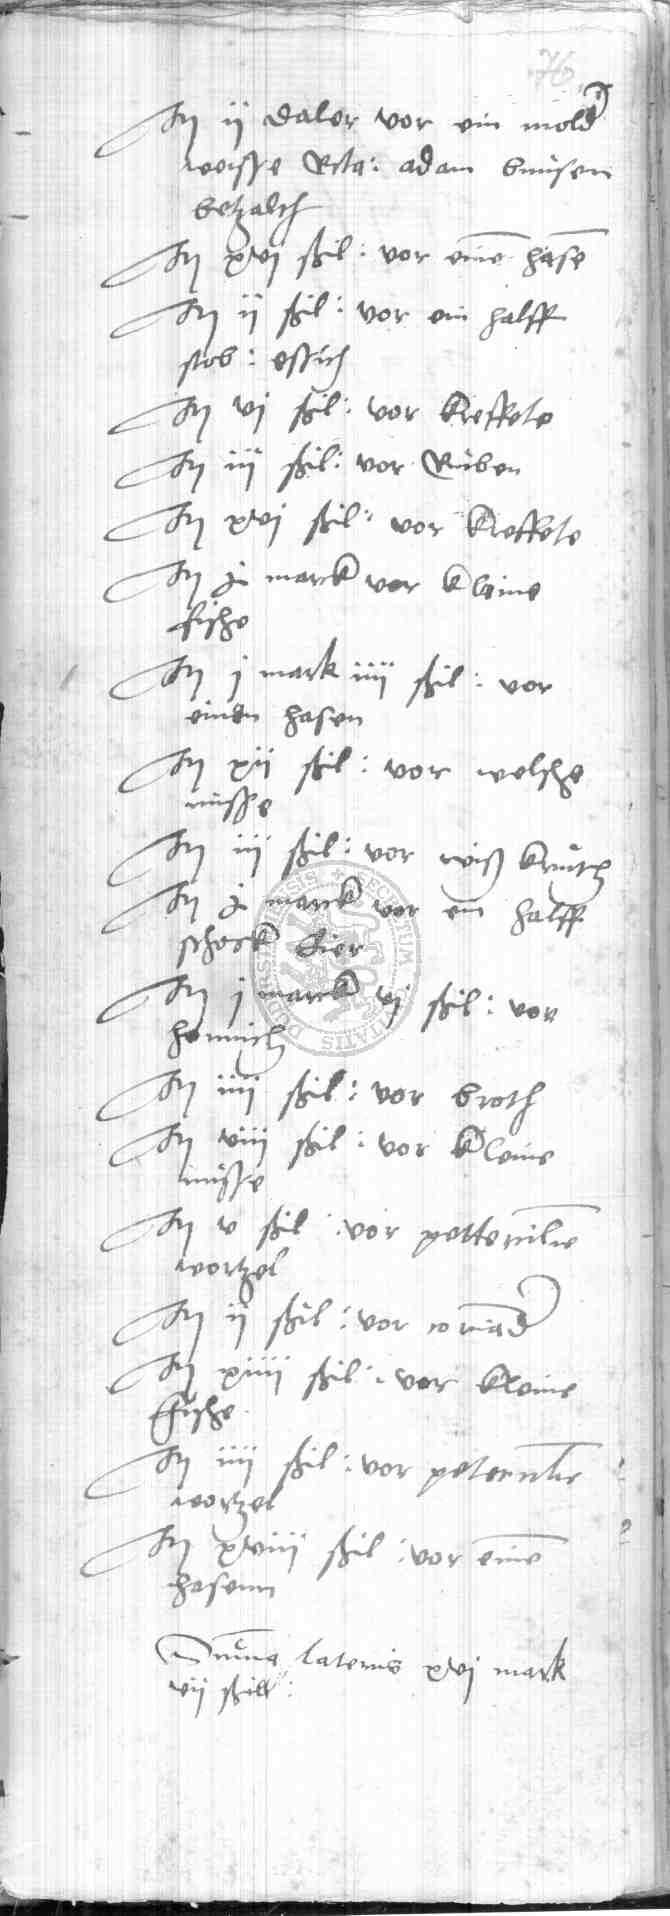 76
It ij daler vor ein mold
weisse Rta: adam bunsen
betzalth
It xvj ßil: vor eine hase
It ij ßil: vor ein halff
stob: essich
It vj ßil: vor kreffete
It iij ßil: vor Ruben
It xvj ßil: vor kreffete
It j marck vor kleine
fische
It j mark iiij ßil: vor
einen hasen
It xij ßil: vor welsche
nusse
It iij ßil: vor wiß krutz
It j marck vor ein halff
schock Eier
It j marck vj ßil: vor
honnich
It iiij ßil: vor broth
It viij ßil: vor kleine
nusse
It v ßil: vor pettercilie
wortzel
It ij ßil: vor coriad
It xiiij ßil: vor kleine
ffische
It iiij ßil: vor petercilie
wortzel
It xviij ßil: vor eine
hasenn
Suma lateris xvj mark
vij ßill: